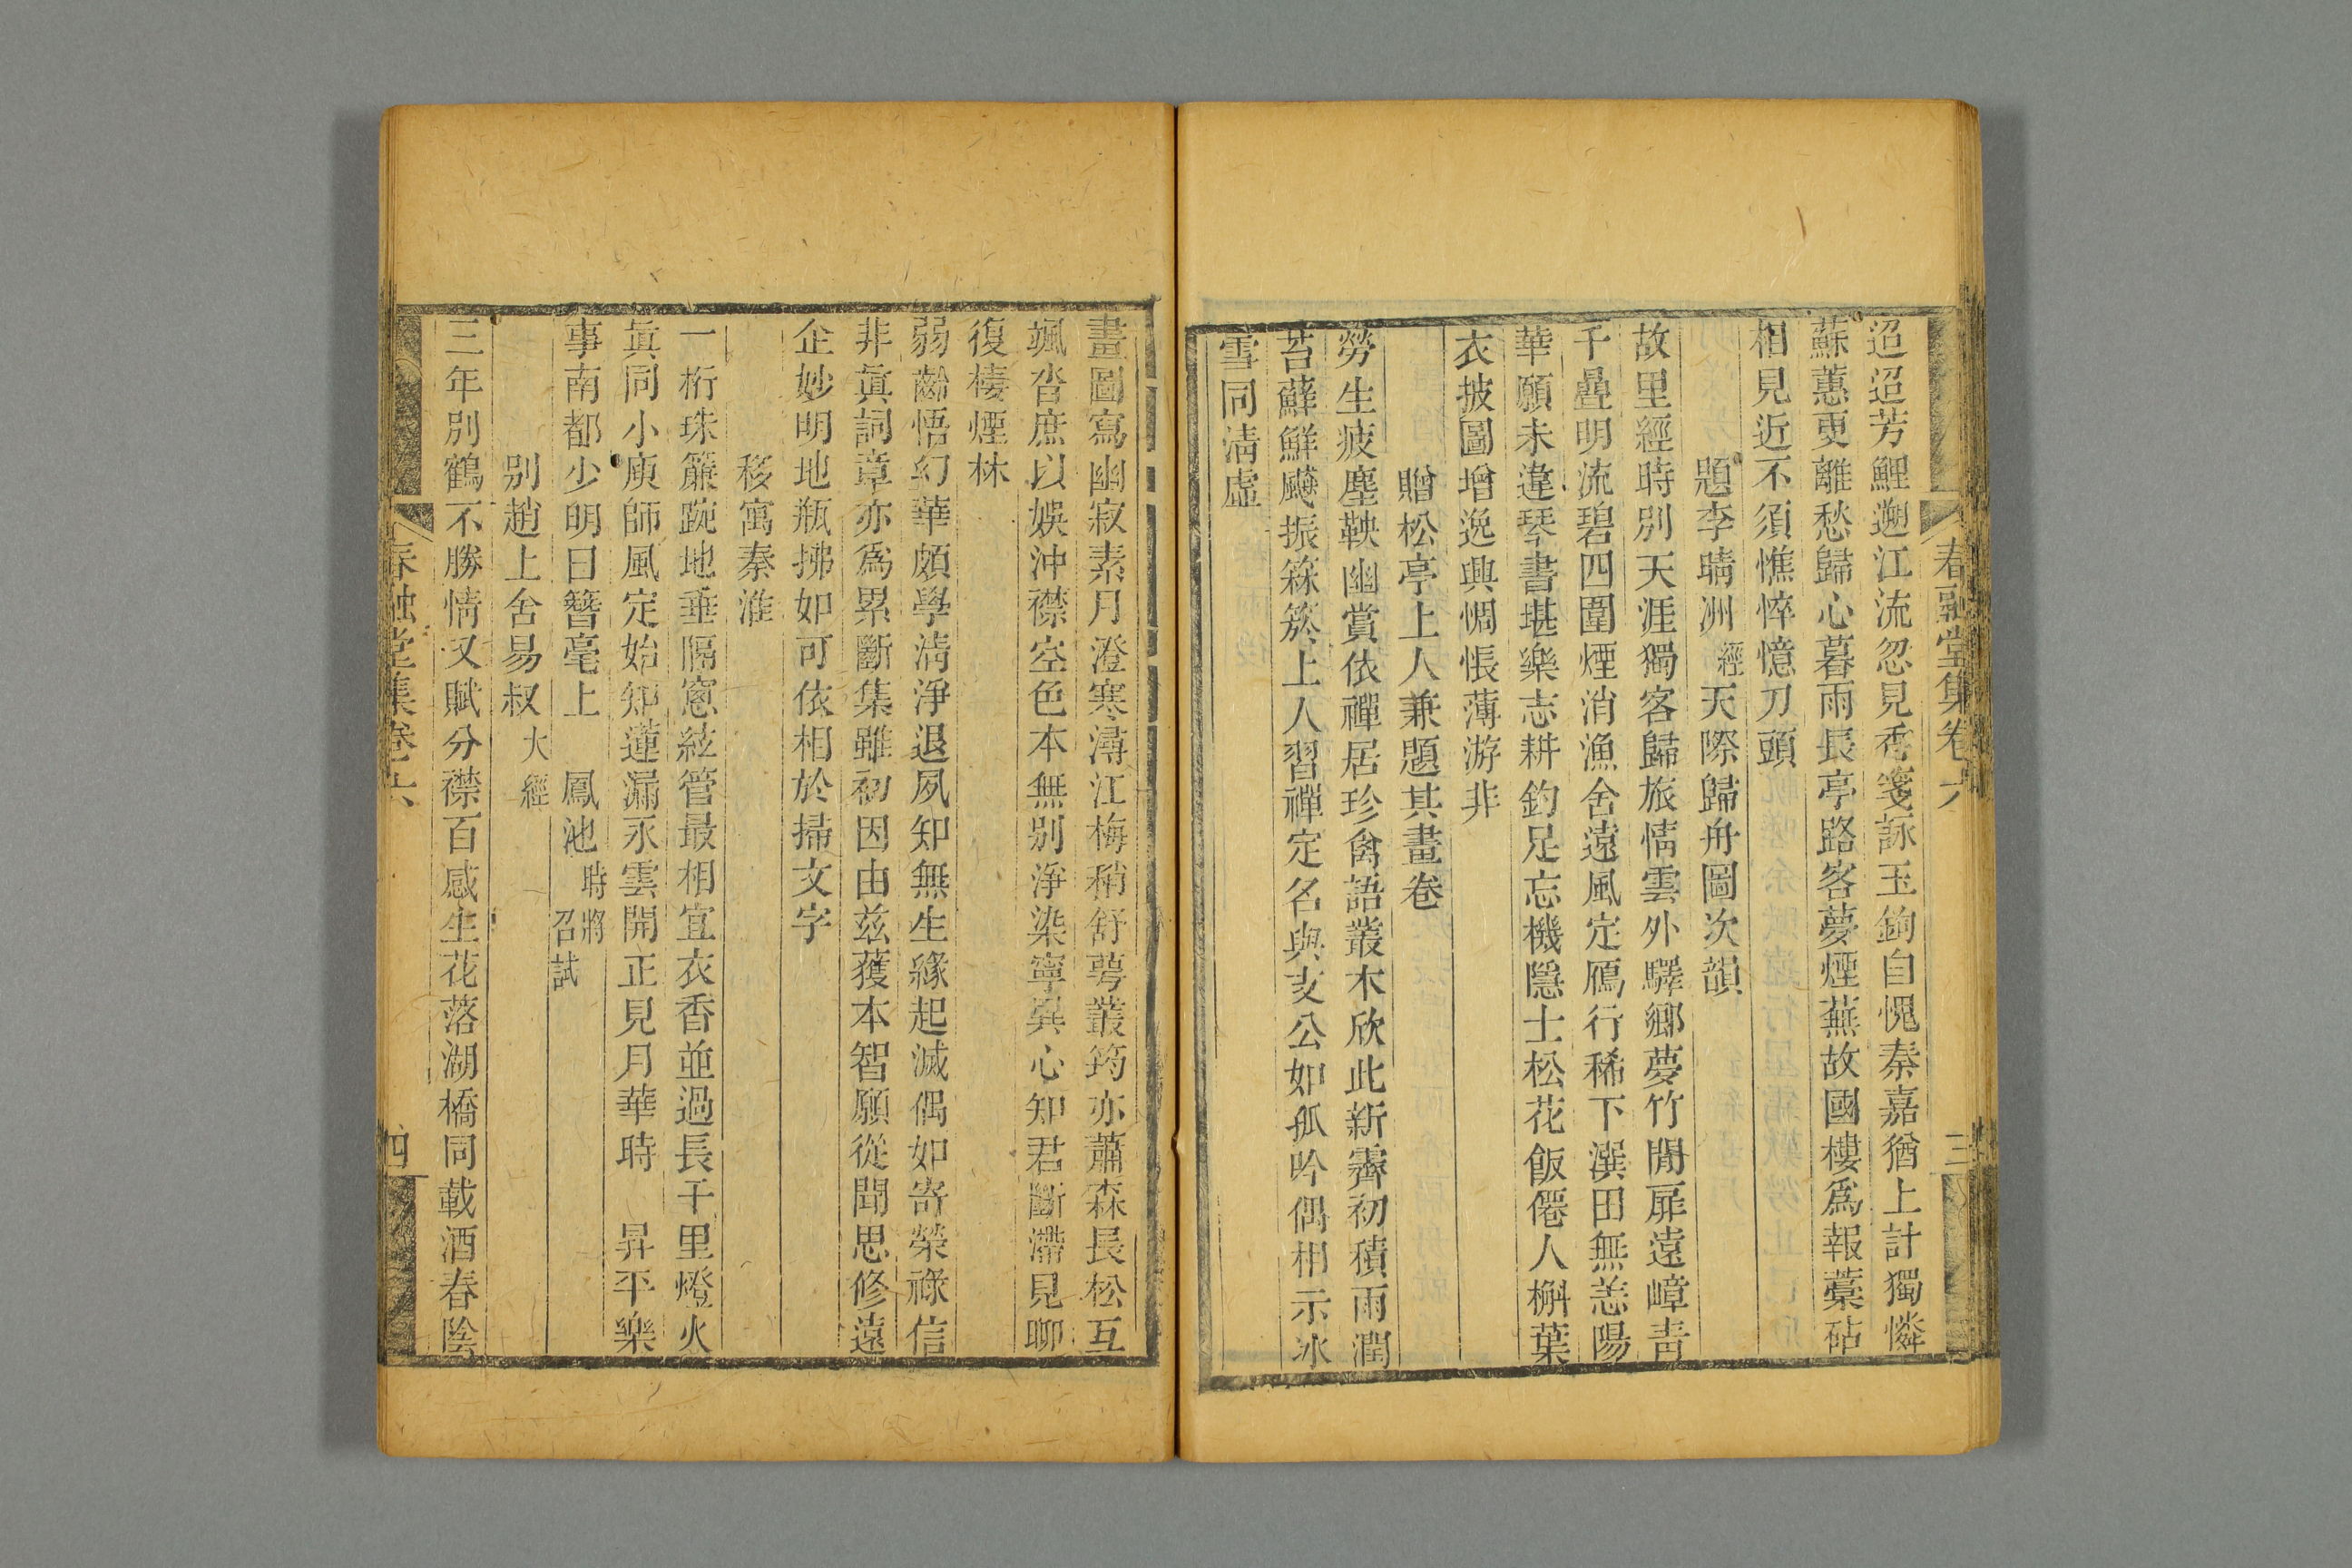 春融堂集卷六
三
迢迢芳鯉遡江流忽見香箋詠玉鉤自愧秦嘉猶上計獨憐
蘇蕙更離愁歸心暮雨長亭路客夢煙蕪故國樓爲報藁砧
相見近不須憔悴憶刀頭
題李晴洲經天際歸舟圖次韻
故里經時別天涯獨客歸旅情雲外驛鄉夢竹閒扉遠嶂靑
千疊明流碧四圍煙消漁舍遠風定鴈行稀下潠田無恙陽
華願未違琴書堪樂志耕釣足忘機隱士松花飯僊人槲葉
衣披圖增逸興惆悵薄游非
贈松亭上人兼題其畫卷
勞生疲塵鞅幽賞依禪居珍禽語叢木欣此新霽初積雨潤
苔蘚鮮飈振篠簜上人習禪定名與支公如孤吟偶相示冰
雪同淸虛
畫圖寫幽寂素月澄寒潯江梅稍舒萼叢筠亦蕭森長松互
颯沓庶以娛沖襟空色本無別淨染寧異心知君斷滯見聊
復棲煙林
弱齡悟幻華頗學淸淨退夙知無生緣起滅偶如寄榮祿信
非眞詞章亦爲累斷集雖初因由茲獲本智願從聞思修遠
企妙明地瓶拂如可依相於掃文字
移寓秦淮
一桁珠簾踠地垂隔窻絃管最相宜衣香並過長干里燈火
眞同小庾師風定始知蓮漏永雲開正見月華時 昇平樂
事南都少明日簪毫上 鳳池時將召試
別趙上舍易叔大經
三年別鶴不勝情又賦分襟百感生花落湖橋同載酒春陰
春融堂集卷六
四